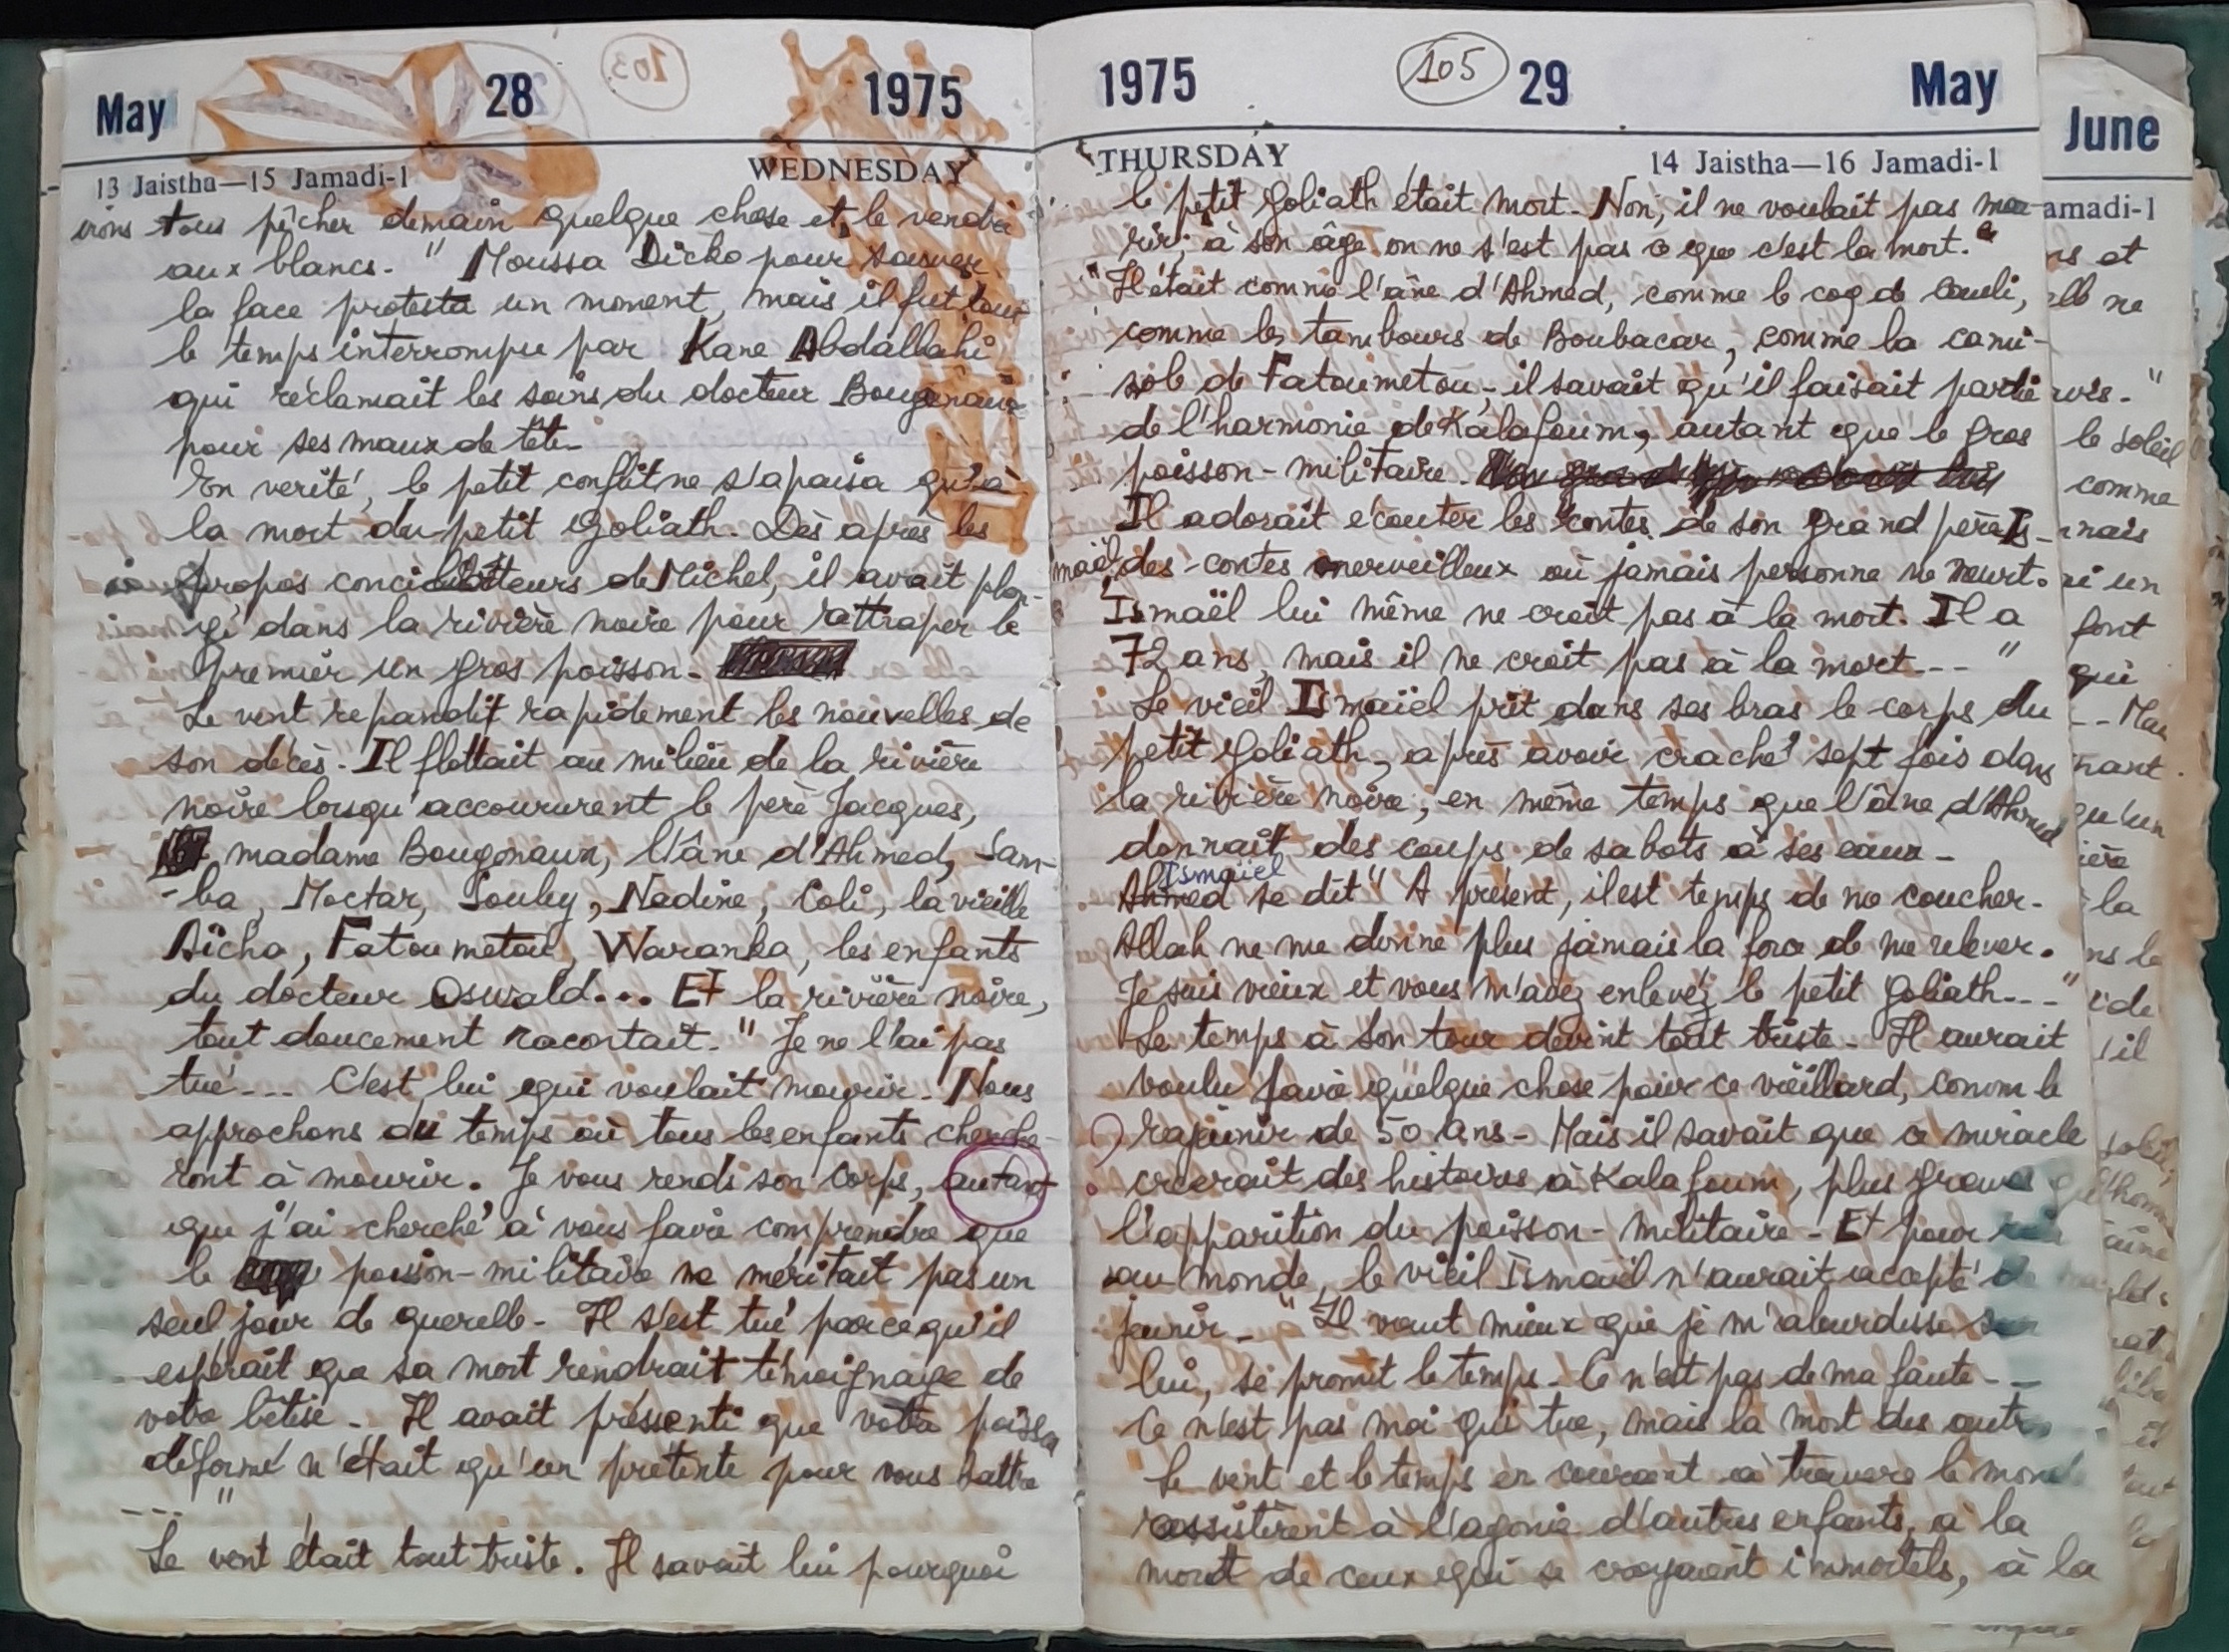 May 28 1975
13 Jaistha—15 Jamadi-1 WEDNESDAY
irons tous pêcher demain quelque chose et le vendre
aux blancs. " Moussa Dicko pour sauver
la face protesta un moment, mais il fut tout
le temps interrompu par Kane Abdallahi
qui réclamait les soins du docteur Bougonaux
pour ses maux de tête.
En verité, le petit conflit ne s'apaisa qu'à
la mort du petit Goliath. Dès après les
propos conciliateurs de Michel, il avait plon-
gé dans la rivière noire pour rattraper le
premier un gros poisson.
Le vent repandit rapidement les nouvelles de
son décès. Il flottait au milieu de la rivière
noire lorsqu'accoururent le père Jacques,
madame Bougonaux, l'âne d'Ahmed, Sam-
-ba, Moctar, Souley, Nadine, Coli, la vieille
Aïcha, Fatoumetou, Waranka, les enfants
du docteur Oswald... Et la rivière noire,
tout doucement racontait. " Je ne l'ai pas
tué --- C'est lui qui voulait mourir. Nous
approchons du temps où tous les enfants cherche-
ront à mourir. Je vous rends son corps, autant
que j'ai cherché à vous faire comprendre que
le poisson-militaire ne méritait pas un
seul jour de querelle - Il s'est tué parce qu'il
espérait que sa mort rendrait témoignage de
votre bêtise - Il avait préssenti que votre poisson
déformé n'était qu'un prétexte pour vous battre
--- "
Le vent était tout triste. Il savait lui pourquoi
1975 105 29 May
THURSDAY 14 Jaistha—16 Jamadi-1
le petit Goliath était mort. Non, il ne voulait pas mou-
rir; à son âge on ne s'est pas ce que c'est la mort.
"Il était comme l'âne d'Ahmed, comme le coq de Couli,
comme les tambours de Boubacar, comme la cami-
sole de Fatoumetou, il savait qu'il faisait partie
de l'harmonie de Kalafoum, autant que le gros
poisson-militaire.
Il adorait écouter les contes de son grand père Is-
maël, des contes merveilleux où jamais personne ne meurt.
Ismaël lui même ne croit pas à la mort. Il a
72 ans, mais il ne croit pas à la mort --- "
Le vieil Ismaïel prit dans ses bras le corps du
petit Goliath, après avoir craché sept fois dans
la rivière noire, en même temps que l'âne d'Ahmed
donnait des coups de sabots à ses eaux -
Ismaïel
Ahmed se dit " A présent, il est temps de me coucher.
Allah ne me donne plus jamais la force de me relever.
Je suis vieux et vous m'avez enlevéz le petit Goliath --- "
Le temps à son tour devint tout triste - Il aurait
voulu faire quelque chose pour ce vieillard, comm le
rajeunir de 50 ans - Mais il savait que ce miracle
créerait des histoires à Kalafoum, plus graves que
l'apparition du poisson-militaire - Et pour rien
au monde, le vieil Ismaïl n'aurait accepté
jeunir - " Il vaut mieux que je m'alourdisse sur
lui, se promit le temps. Ce n'est pas de ma faute --
Ce n'est pas moi qui tue, mais la mort des autres
Le vent et le temps en courant à travers le monde
assistèrent à l'agonie d'autres enfants, à la
mort de ceux qui se croyaient immortels, à la
June
amadi-1
ns et
elle ne
avis. "
le soleil
comme
nais
ai un
font
qui
nant
qu'un
ière
la
ns le
s'il